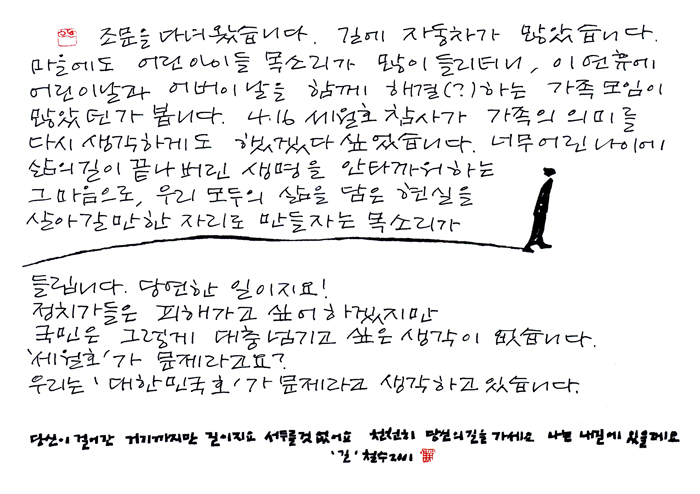 조문을 다녀왔습니다. 길에 자동차가 많았습니다.
마을에도 어린아이들 목소리가 많이 들리더니, 이 연휴에
어린이날과 어버이날을 함께 해결(?)하는 가족모임이
많았던가 봅니다. 4.16 세월호 참사가 가족의 의미를
다시 생각하게도 했겠다 싶었습니다. 너무 어린 나이에
삶의 길이 끝나버린 생명을 안타까워하는
그 마음으로, 우리 모두의 삶을 담은 현실을
살아갈만한 자리로 만들자는 목소리가
들립니다. 당연한 일이지요!
정치가들은 피해가고 싶어하겠지만
국민은 그렇게 대충 넘기고 싶은 생각이 없습니다.
'세월호'가 문제라고요?
우리는 '대한민국호'가 문제라고 생각하고 있습니다.
당신이 걸어간 거기까지만 길이지요 서두를것 없어요 천천히 당신의 길을 가세요 나는 내길에 있을께요
'길' 철수 2001